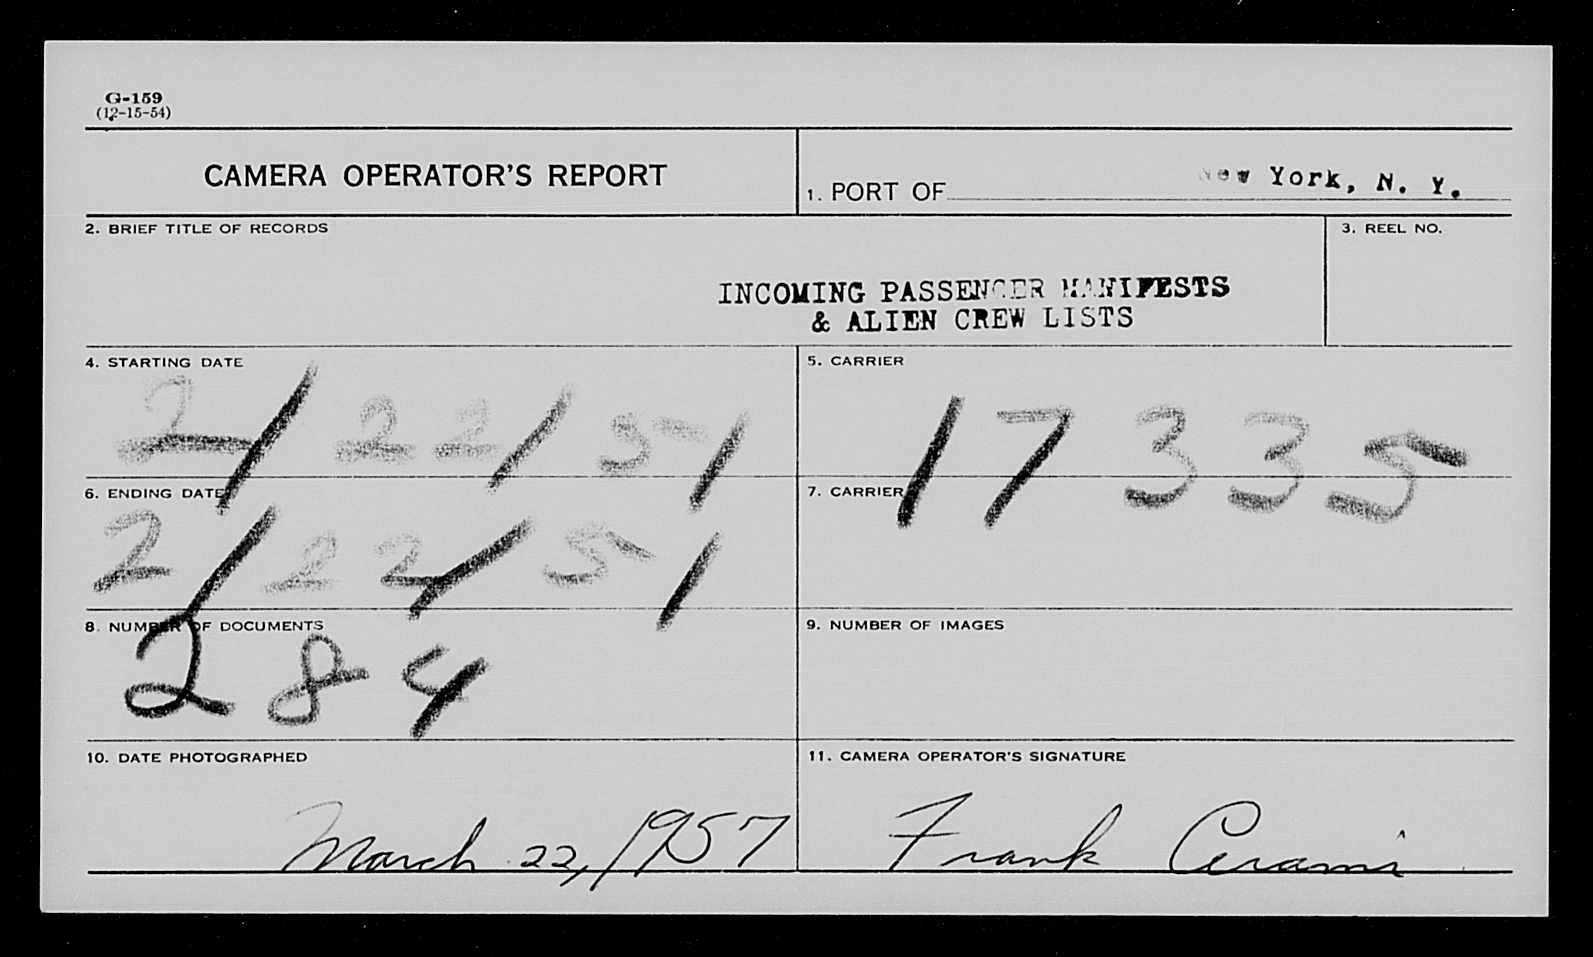 G-159
(12-15-54)
CAMERA OPERATOR'S REPORT
1. PORT OF New York, N. Y.
2. BRIEF TITLE OF RECORDS
3. REEL NO.
INCOMING PASSENGER MANIFESTS
& ALIEN CREW LISTS
4. STARTING DATE
5. CARRIER
2/22/51
17335
6. ENDING DATE
7. CARRIER
2/22/51
8. NUMBER OF DOCUMENTS
9. NUMBER OF IMAGES
284
10. DATE PHOTOGRAPHED
11. CAMERA OPERATOR'S SIGNATURE
March 22, 1957
Frank Cerami